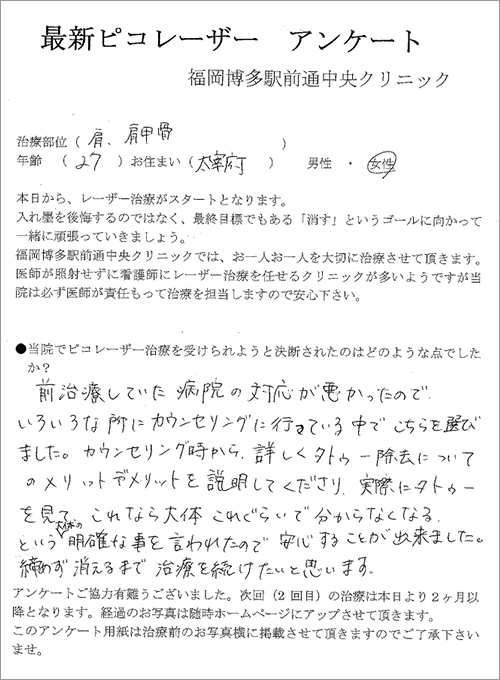 最新ピコレーザー　アンケート
福岡博多駅前通中央クリニック
治療部位（ 肩、肩甲骨 ）
年齢 （ 27 ）お住まい（ 太宰府 ） 男性 ・ 女性
本日から、レーザー治療がスタートとなります。
入れ墨を後悔するのではなく、最終目標でもある「消す」というゴールに向かって
一緒に頑張っていきましょう。
福岡博多駅前通中央クリニックでは、お一人お一人を大切に治療させて頂きます。
医師が照射せずに看護師にレーザー治療を任せるクリニックが多いようですが当
院は必ず医師が責任もって治療を担当しますので安心下さい。
●当院でピコレーザー治療を受けられようと決断されたのはどのような点でした
か？
前治療していた病院の対応が悪かったので、
いろいろな所にカウンセリングに行っている中でこちらを選び
ました。カウンセリング時から、詳しくタトゥー除去について
のメリットデメリットを説明してくださり、実際にタトゥー
を見て、これなら大体これぐらいで分からなくなる
という大体の明確な事を言われたので安心することが出来ました。
締めず消えるまで治療を続けたいと思います。
アンケートご協力有難うございました。次回（２回目）の治療は本日より２ヶ月以
降となります。経過のお写真は随時ホームページにアップさせて頂きます。
このアンケート用紙は治療前のお写真横に掲載させて頂きますのでご了承下さい
ませ。